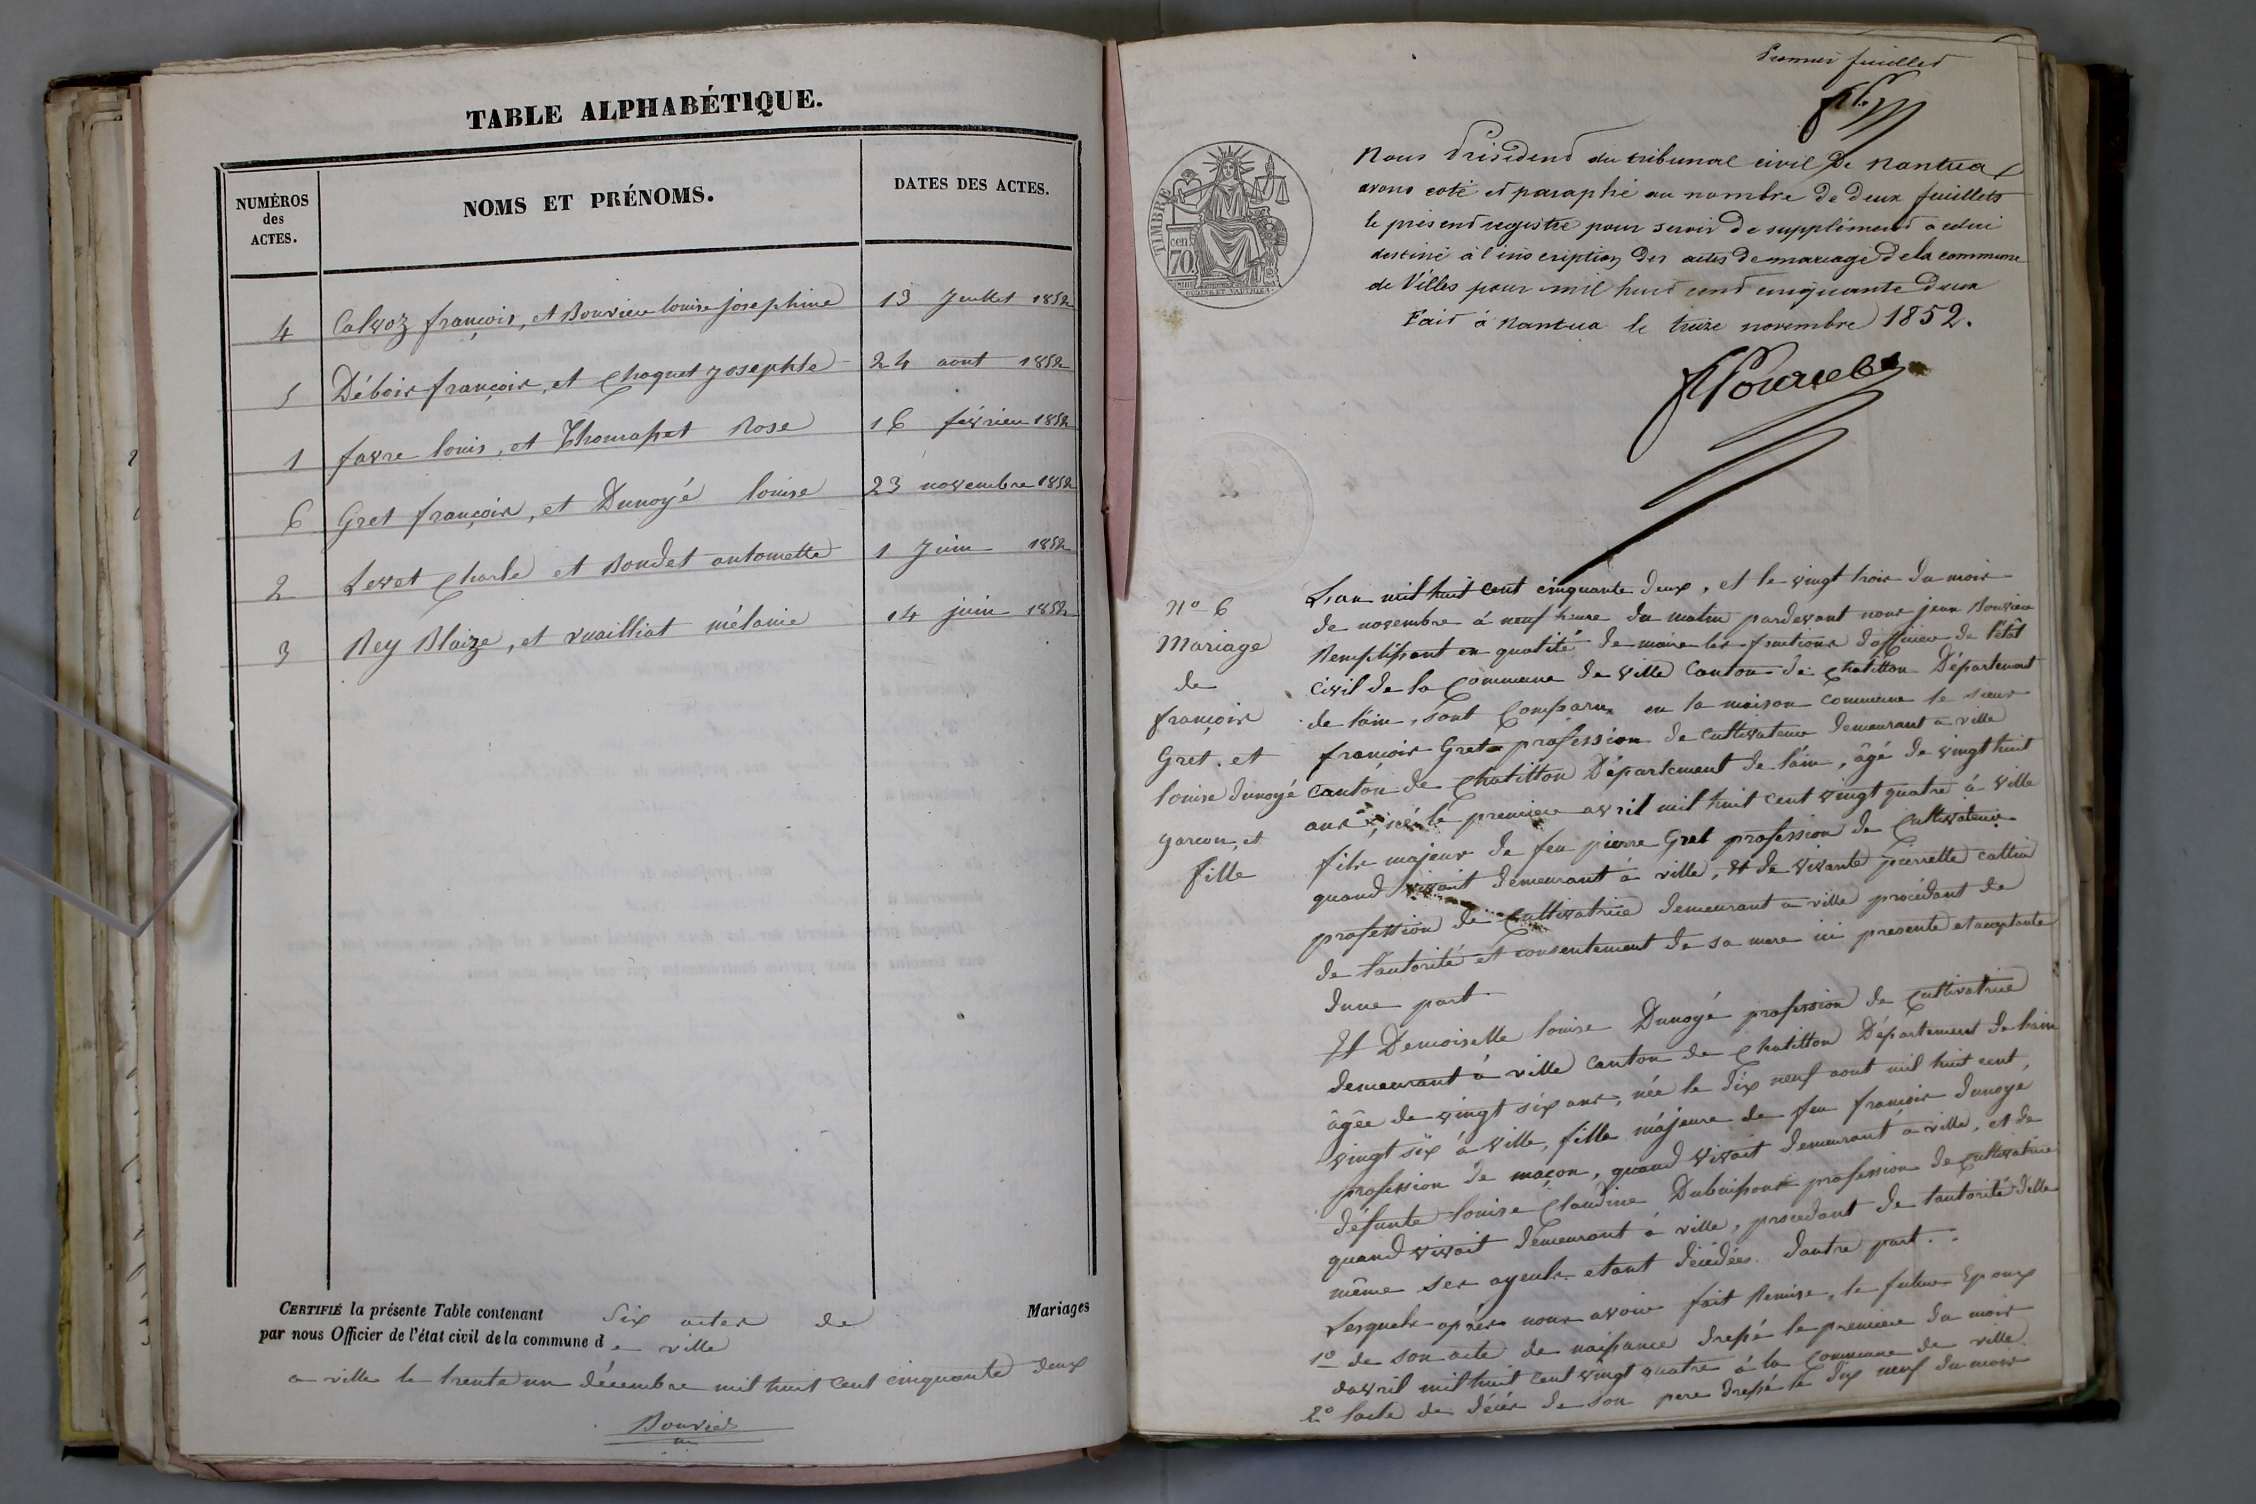 TABLE ALPHABÉTIQUE.
NUMÉROS
des
ACTES.
NOMS ET PRÉNOMS.
DATES DES ACTES.
4 Calvoz françois, et Bouvier louise josephine 13 Juillet 1852
5 Débois françois, et Choquet Josephte 24 aout 1852
1 favre louis, et Thomasset Rose 16 février 1852
6 Gret françois, et Dunoyé louise 23 novembre 1852
2 Levet Charle et Boudet antoinette 1 Juin 1852
3 Rey Blaize, et vuailliat mélanie 14 juin 1852
CERTIFIÉ la présente Table contenant six actes de Mariages
par nous Officier de l'état civil de la commune de ville
a ville le trente un décembre mil huit cent cinquante deux
Bouvier
Premier feuillet
TIMBRE
70 cen
Nous Président du tribunal civil De Nantua
avons coté et paraphé au nombre de deux feuillets
le présent registre pour servir de supplément à celui
destiné à l'inscription des actes de mariage de la commune
de Villes pour mil huit cent cinquante deux
Fait à Nantua le treize novembre 1852.
N° 6
Mariage
de
françois
Gret. et
louise dunoyé
garcon, et
fille
L'an mil huit cent cinquante deux, et le vingt trois du mois
de novembre á neuf heure du matin pardevant nous jean Bouvier
Remplissant en qualité de maire les fonctions dofficier de l'état
civil de la Commune de ville Canton de Chatillon Département
de l'ain, sont Comparu en la maison commune le sieur
françois Gret profession de cultivateur demeurant a ville
Canton de Chatillon Département de l'ain, âgé de vingt huit
ans, né le premier avril mil huit cent vingt quatre á ville
fils majeur de feu pierre Gret profession de Cultivateur
quand vivait demeurant á ville, et de vivante pierrette callin
profession de Cultivatrice demeurant a ville procédant de
de l'autorité et consentement de sa mere ici presente et acceptante
dune part
Et Demoiselle louise Dunoyé profession de Cultivatrice
demeurant á ville canton de Chatillon Département de l'ain
âgée de vingt six ans, née le dix neuf aout mil huit cent
vingt six á ville, fille májeure de feu francois dunoyé
profession de maçon, quand vivait demeurant á ville, et de
défunte louise Claudine Dubuisson profession de cultivatrice
quand vivait demeurant á ville, procedant de l'autorité delle
même ses ayeuls etant décédées. dautre part.
Lesquels aprés nous avoir fait Remise, le futur Epoux
1° de son acte de naissance dressé le premier du mois
davril mil huit cent vingt quatre á la Commune de ville
2° l'acte de décés de son pere dressé le dix neuf du mois